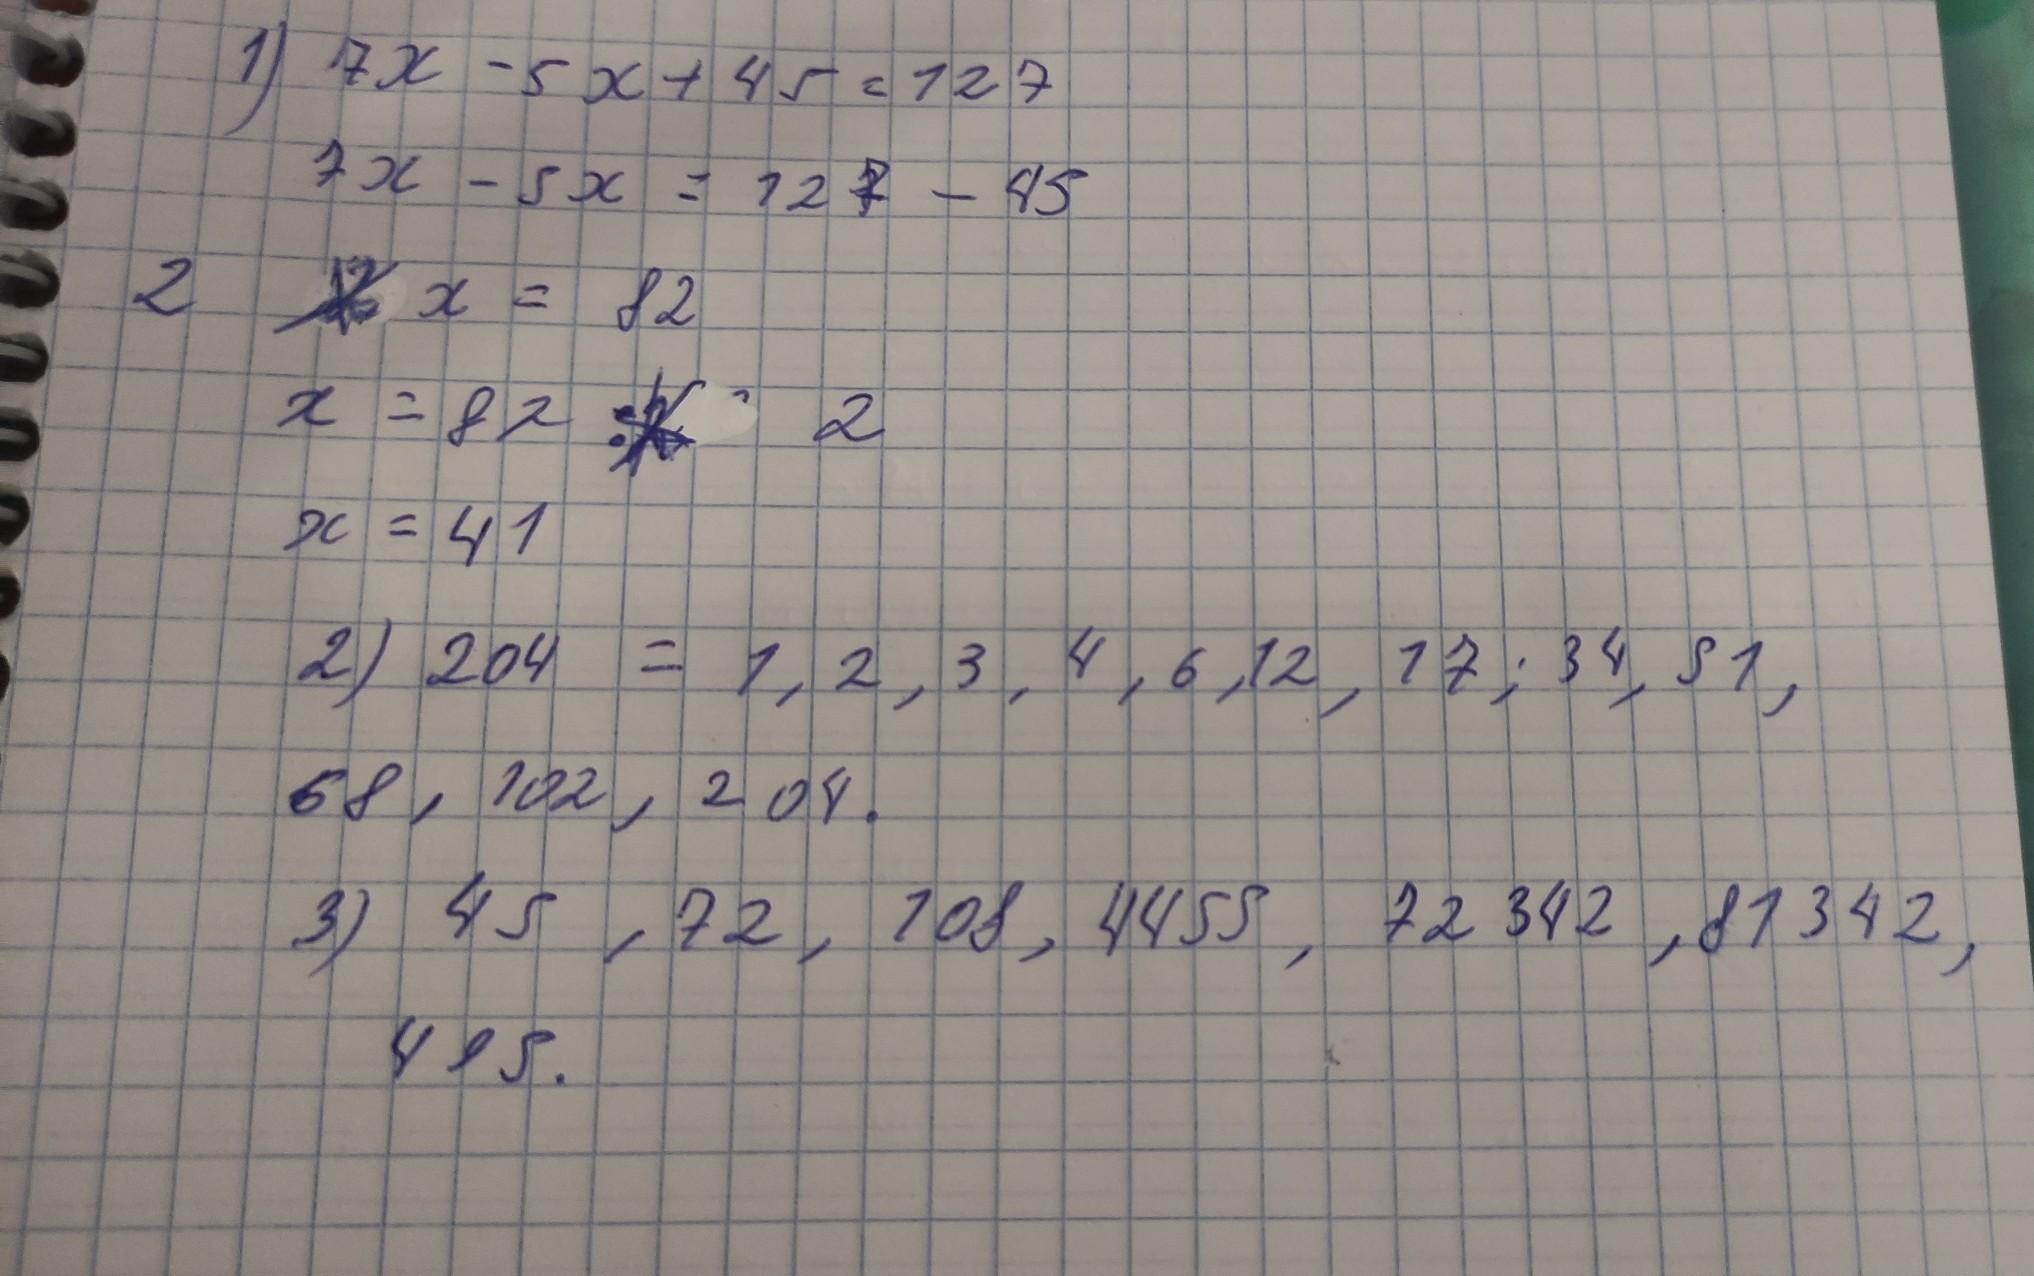 1) 7x - 5x + 45 = 127
7x - 5x = 127 - 45
2 x = 82
x = 82 : 2
x = 41
2) 204 = 1, 2, 3, 4, 6, 12, 17; 34, 51,
68, 102, 204.
3) 45, 72, 108, 4455, 72342, 81342,
495.